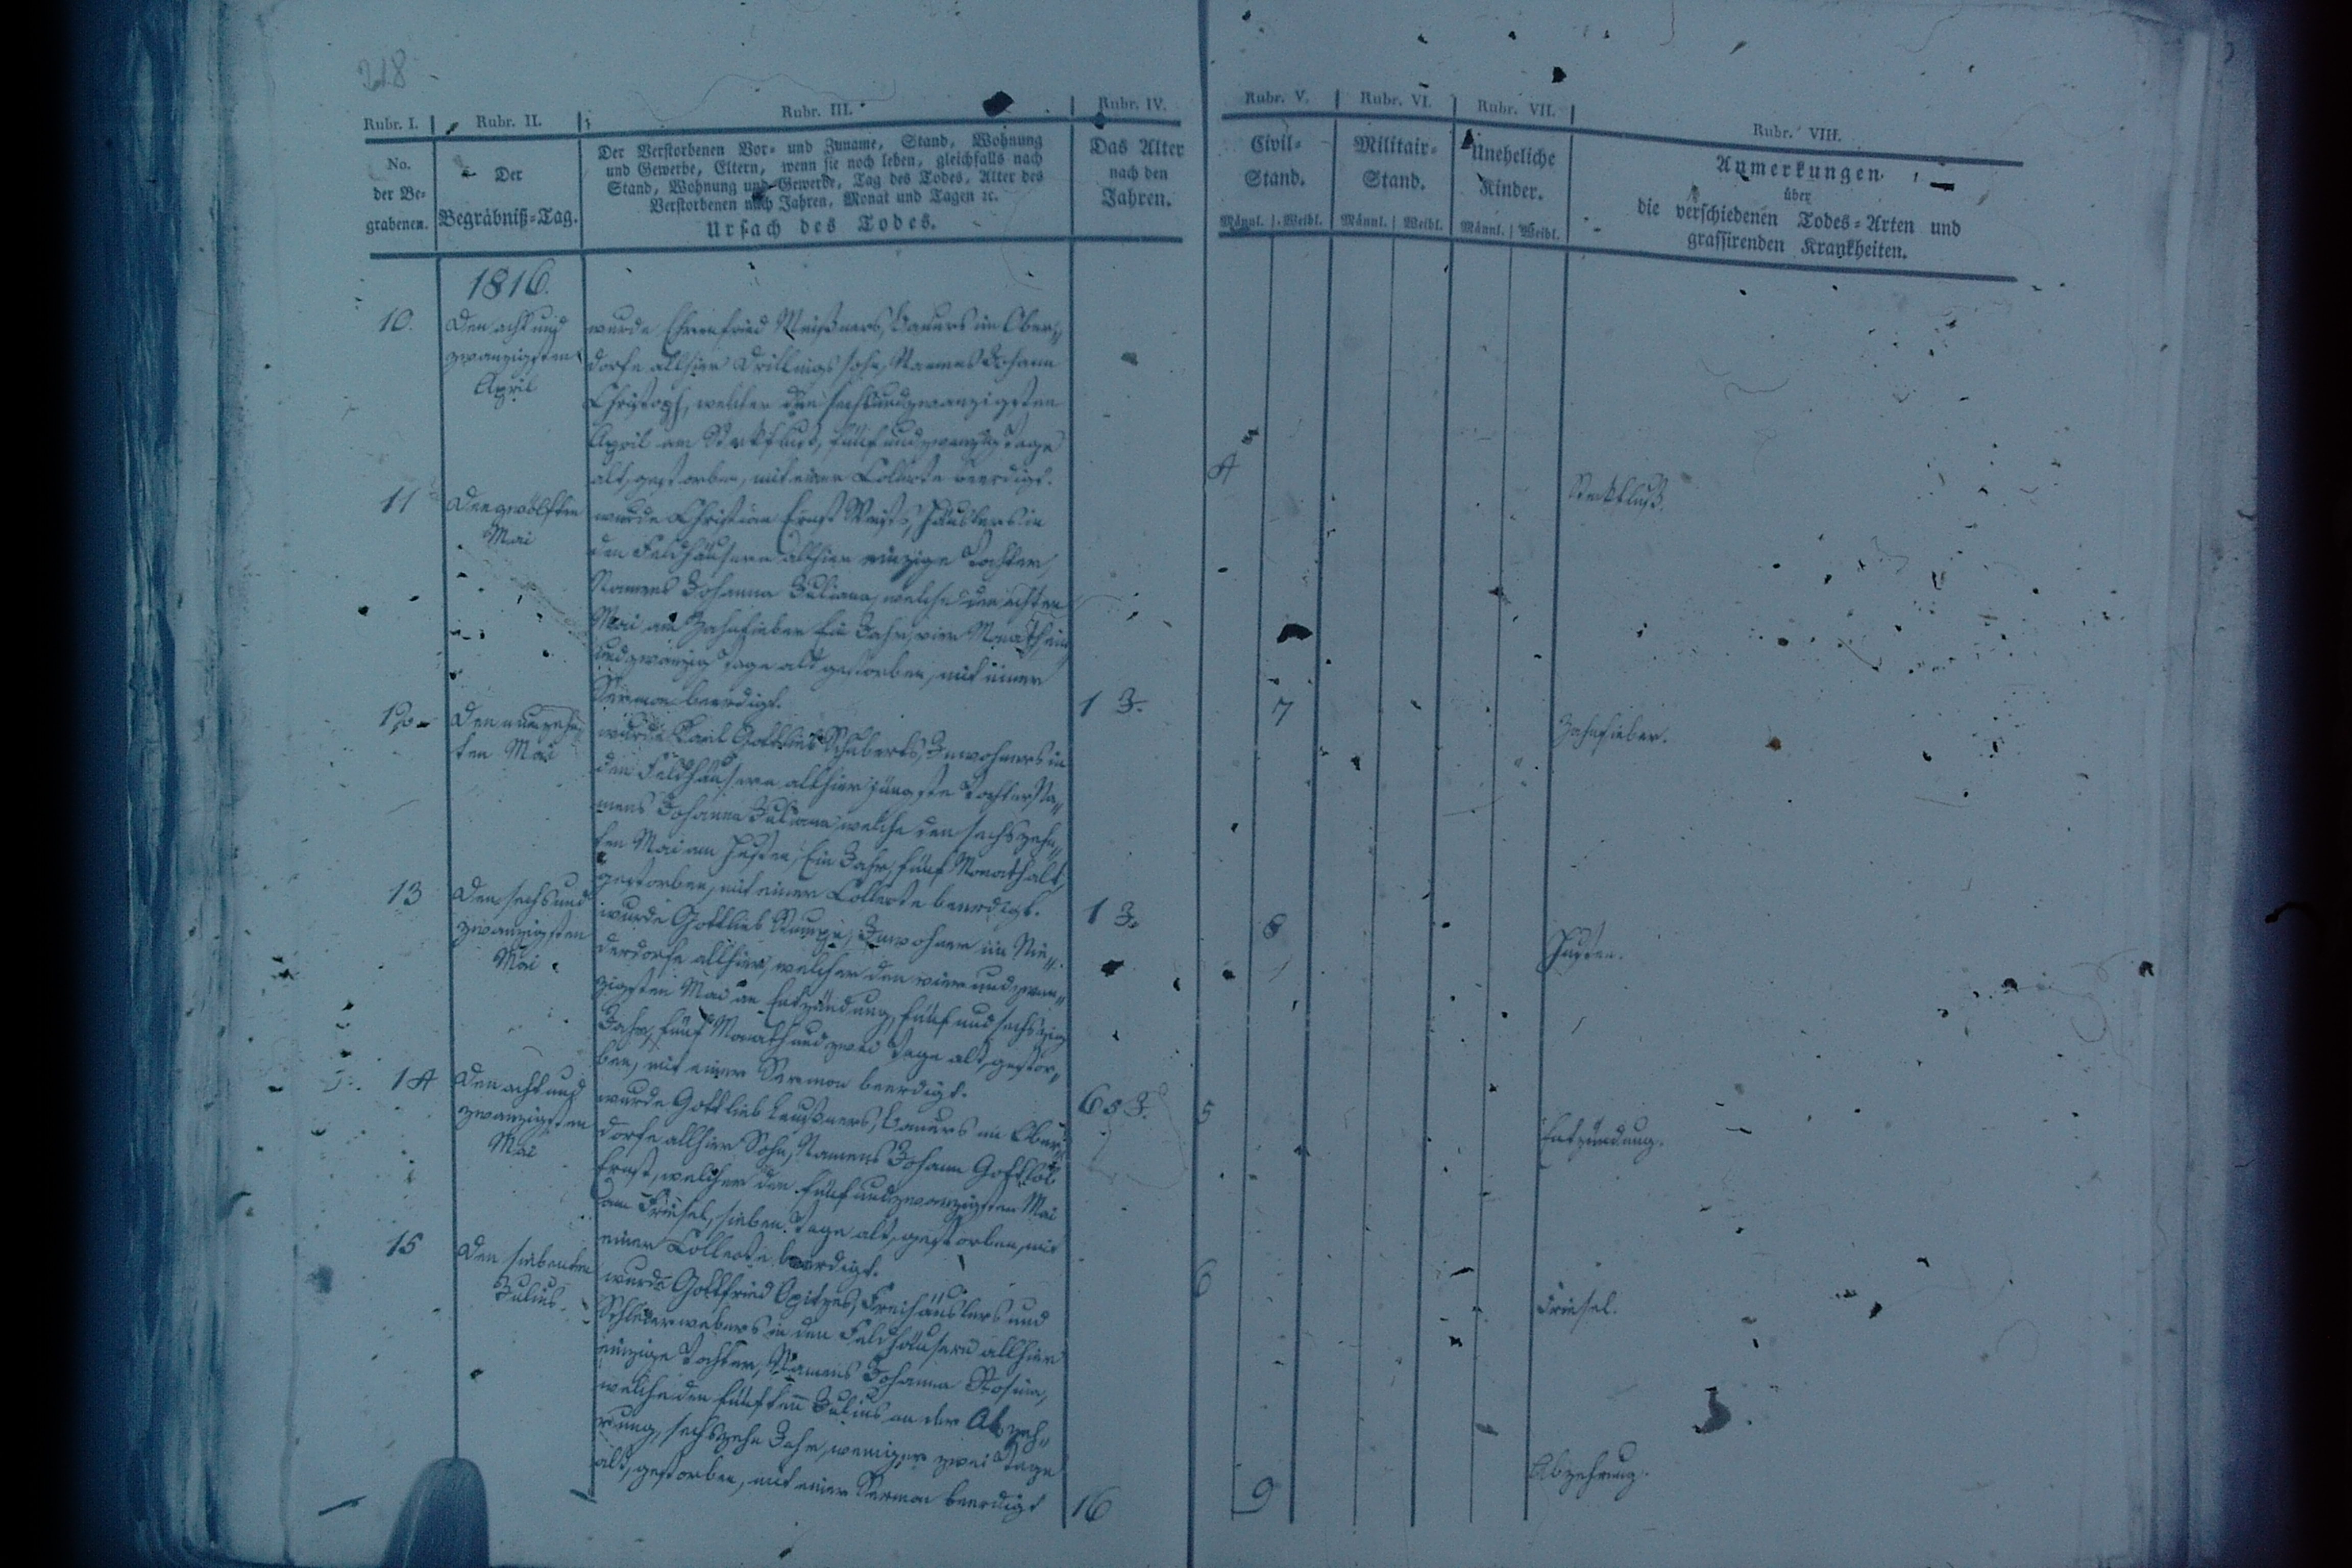 218
Rubr. I. Rubr. II. Rubr. III. Rubr. IV. Rubr. V. Rubr. VI. Rubr. VII. Rubr. VIII.
No.
der Be-
grabenen.
Der
Begräbniß-Tag.
Der Verstorbenen Vor- und Zuname, Stand, Wohnung
und Gewerbe, Eltern, wenn sie noch leben, gleichfalls nach
Stand, Wohnung und Gewerbe, Tag des Todes, Alter des
Verstorbenen nach Jahren, Monat und Tagen ꝛc.
Ursach des Todes.
Das Alter
nach den
Jahren.
Civil-
Stand.
Männl. Weibl.
Militair-
Stand.
Männl. Weibl.
Uneheliche
Kinder.
Männl. Weibl.
Anmerkungen
über
die verschiedenen Todes-Arten und
grassirenden Krankheiten.
1816.
10.
Den acht und
zwanzigsten
April
wurde Ehrenfried Meißners, Bauers im Ober-
dorfe allhier Drillings Sohn, Namens Johann
Christoph, welcher den sechsundzwanzigsten
April am Stekfluß, fünfundzwanzig Tage
alt, gestorben, mit einer Collecte beerdigt.
4
Stekfluß.
11
Den zwölften
Mai
wurde Christian Ernst, Häuslers in
den Feldhäusern allhier einzige Tochter,
Namens Johanna Juliana, welche den achten
Mai am Zahnfieber Ein Jahr, vier Monath ein
und zwanzig Tage alt gestorben, mit einer
Sermon beerdigt.
1 J.
7
Zahnfieber.
12
Den neunzehn-
ten Mai
wurde Karl Gottlieb Schuberts, Inwohners in
den Feldhäusern allhier jüngste Tochter Na-
mens Johanna Juliana, welche den sechszehn-
ten Mai am Husten, Ein Jahr, fünf Monath alt,
gestorben, mit einer Collecte beerdigt.
1 J.
8
Husten.
13
Den sechs und
zwanzigsten
Mai
wurde Gottlieb, Inwohner im Nie-
derdorfe allhier, welcher den vier und zwan-
zigsten Mai an Entzündung, fünf und sechszig
Jahr, fünf Monath und zwei Tage alt, gestor-
ben, mit einer Sermon beerdigt.
65 J.
5
Entzündung.
14
Den acht und
zwanzigsten
Mai
wurde Gottlieb Leußners, Bauers im Ober-
dorfe allhier Sohn, Namens Johann Gottlob
Ernst, welcher den fünf und zwanzigsten Mai
am Friesel, sieben Tage alt, gestorben, mit
einer Collecte beerdigt.
6
Friesel.
15
Den siebenten
Julius.
wurde Gottfried Opitzes, Freihäuslers und
Schleierwebers in den Feldhäusern allhier
einzige Tochter, Namens Johanna Rosina,
welche den fünften Julius an der Abzeh-
rung, sechszehn Jahr, weniger zwei Tage
alt, gestorben, mit einer Sermon beerdigt
16
9
Abzehrung.